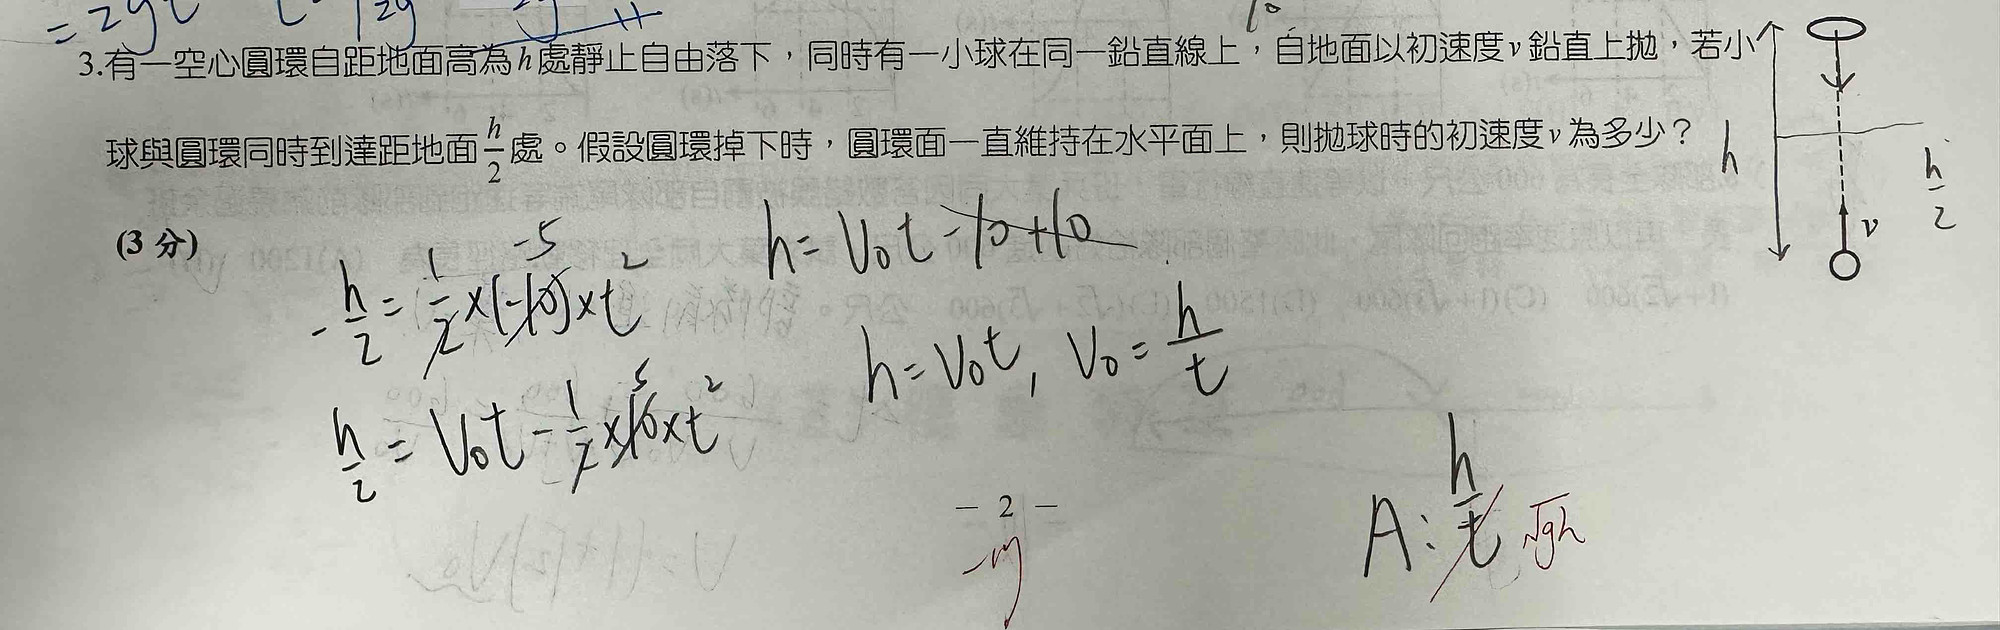 = 2gt
3.有一空心圓環自距地面高為h處靜止自由落下，同時有一小球在同一鉛直線上，自地面以初速度v鉛直上拋，若小
球與圓環同時到達距地面h/2處。假設圓環掉下時，圓環面一直維持在水平面上，則拋球時的初速度v為多少？
(3分)
h
h/2
v
-h/2 = 1/2×(-10)×t² -5
h/2 = V₀t - 1/2×10×t² 5
h = V₀t - 10 + 10
h = V₀t, V₀ = h/t
A: h/t √gh
- 2 -